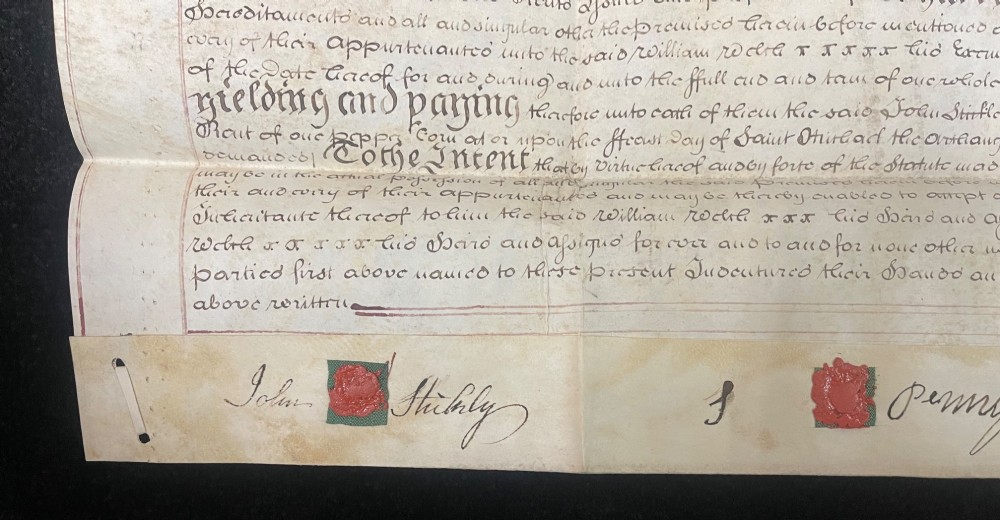 Hereditaments and all and singular other the premises herein before mentioned
every of their Appurtenances unto the said William Welch x x x x x his
of the Date hereof for and during and unto the ffull end and term of one whole
Yielding and paying therefore unto each of them the said John
Rent of one pepper Corn at or upon the ffeast Day of Saint Michael the
demanded To the Intent that by Virtue hereof and by force of the Statute
may be in the actual possession of all and singular the said premises
their and every of their Appurtenances and may be thereby enabled to accept
Inheritance thereof to him the said William Welch x x x his Heirs and
Welch x x x x x his Heirs and assigns for ever and to and for none other
parties first above named to these present Indentures their Hands
above written
John Stickly
J Penny